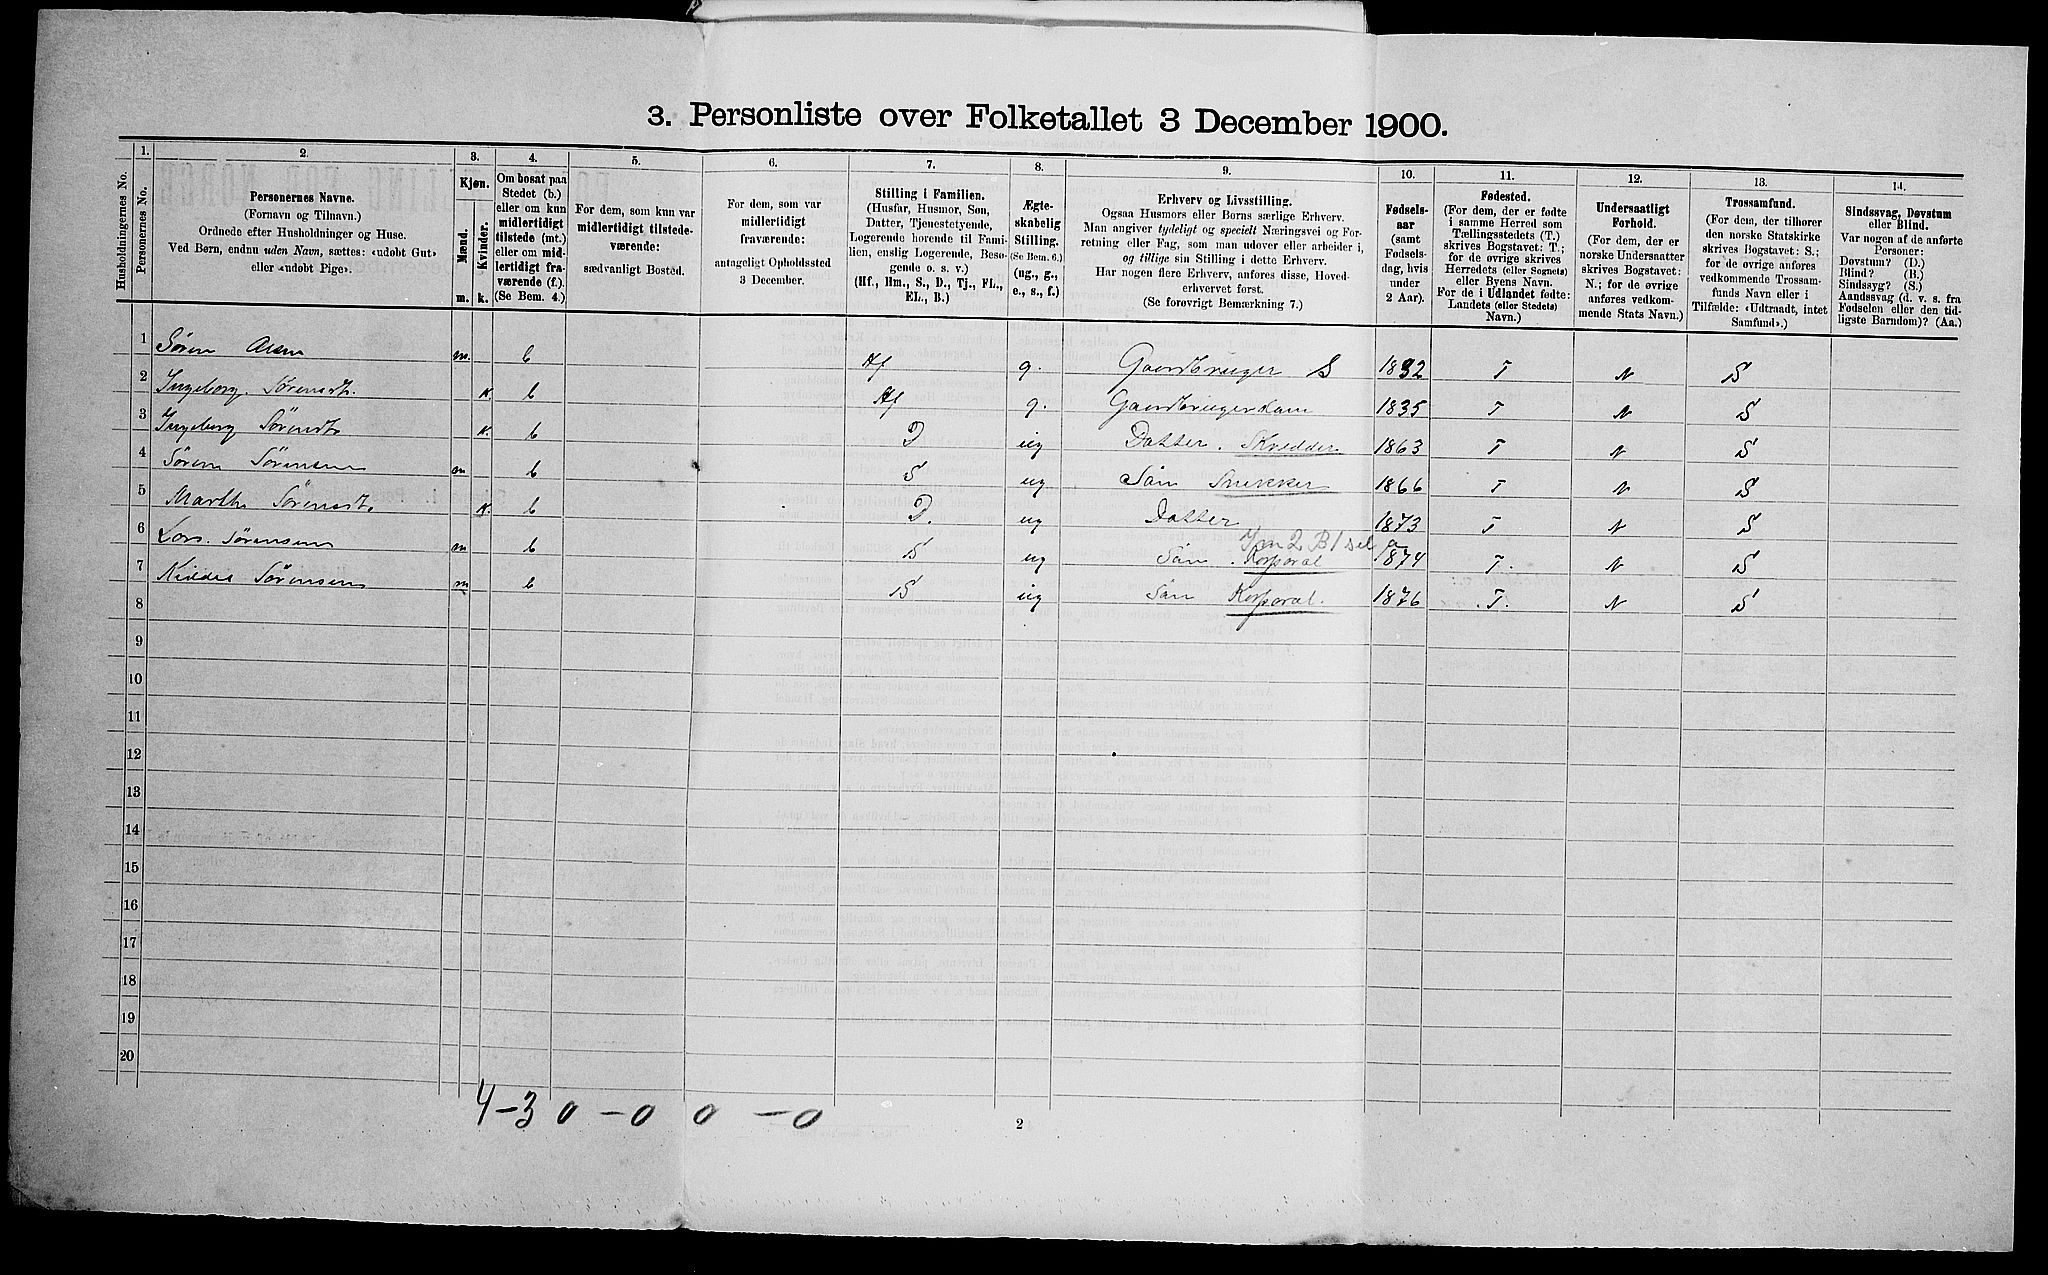 3. Personliste over Folketallet 3 December 1900.
1. 2. 3. 4. 5. 6. 7. 8. 9. 10. 11. 12. 13. 14.
Husholdningernes No.
Personernes No.
Personernes Navne.
(Fornavn og Tilnavn.)
Ordnede efter Husholdninger og Huse.
Ved Børn, endnu uden Navn, sættes: «udøbt Gut»
eller «udøbt Pige».
Kjøn.
Mænd.
Kvinder.
m. k.
Om bosat paa
Stedet (b.)
eller om kun
midlertidigt
tilstede (mt.)
eller om mid-
lertidigt fra-
værende (f.).
(Se Bem. 4.)
For dem, som kun var
midlertidigt tilstede-
værende:
sædvanligt Bosted.
For dem, som var
midlertidigt
fraværende:
antageligt Opholdssted
3 December.
Stilling i Familien.
(Husfar, Husmor, Søn,
Datter, Tjenestetyende,
Logerende hørende til Fami-
lien, enslig Logerende, Besø-
gende o. s. v.)
(Hf., Hm., S., D., Tj., FL.,
EL., B.)
Ægte-
skabelig
Stilling.
(Se Bem. 6.)
(ug., g.,
e., s., f.)
Erhverv og Livsstilling.
Ogsaa Husmors eller Børns særlige Erhverv.
Man angiver tydeligt og specielt Næringsvei og For-
retning eller Fag, som man udøver eller arbeider i,
og tillige sin Stilling i dette Erhverv.
Har nogen flere Erhverv, anføres disse, Hoved-
erhvervet først.
(Se forøvrigt Bemærkning 7.)
Fødsels-
aar
(samt
Fødsels-
dag, hvis
under
2 Aar).
Fødested.
(For dem, der er fødte
i samme Herred som
Tællingsstedets (T.)
skrives Bogstavet: T.;
for de øvrige skrives
Herredets (eller Sognets)
eller Byens Navn.
For de i Udlandet fødte:
Landets (eller Stedets)
Navn.)
Undersaatligt
Forhold.
(For dem, der er
norske Undersaatter
skrives Bogstavet:
N.; for de øvrige
anføres vedkom-
mende Stats Navn.)
Trossamfund.
(For dem, der tilhører
den norske Statskirke
skrives Bogstavet: S.;
for de øvrige anføres
vedkommende Trossam-
funds Navn eller i
Tilfælde: «Udtraadt, intet
Samfund».)
Sindssvag, Døvstum
eller Blind.
Var nogen af de anførte
Personer:
Døvstum? (D.)
Blind? (B.)
Sindssyg? (S.)
Aandssvag (d. v. s. fra
Fødselen eller den tid-
ligste Barndom)? (Aa.)
1 Søren Olsen m. b Hf g. Gaardbruger S 1832 T N S
2 Ingeborg Sørensdt. k. b Hf g. Gaardbrugerkone 1835 T N S
3 Ingeborg Sørensdt. k. b D ug Datter. Skredder 1863 T N S
4 Søren Sørensen m b S ug Søn Snekker 1866 T N S
5 Marthe Sørensdt. k. b D. ug Datter 1873 T N S
6 Lars Sørensen m b S ug Søn. Korporal 1874 T. N S
7 Sørensen m b S ug Søn Korporal. 1876 T. N S
8
9
10
11
12
13
14
15
16
17
18
19
20
4-3 0-0 0-0
2